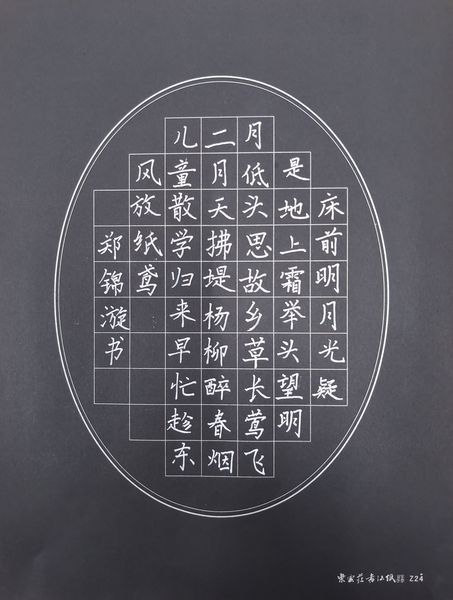 床前明月光疑
是地上霜举头望明
月低头思故乡草长莺飞
二月天拂堤杨柳醉春烟
儿童散学归来早忙趁东
风放纸鸢
郑锦漩书